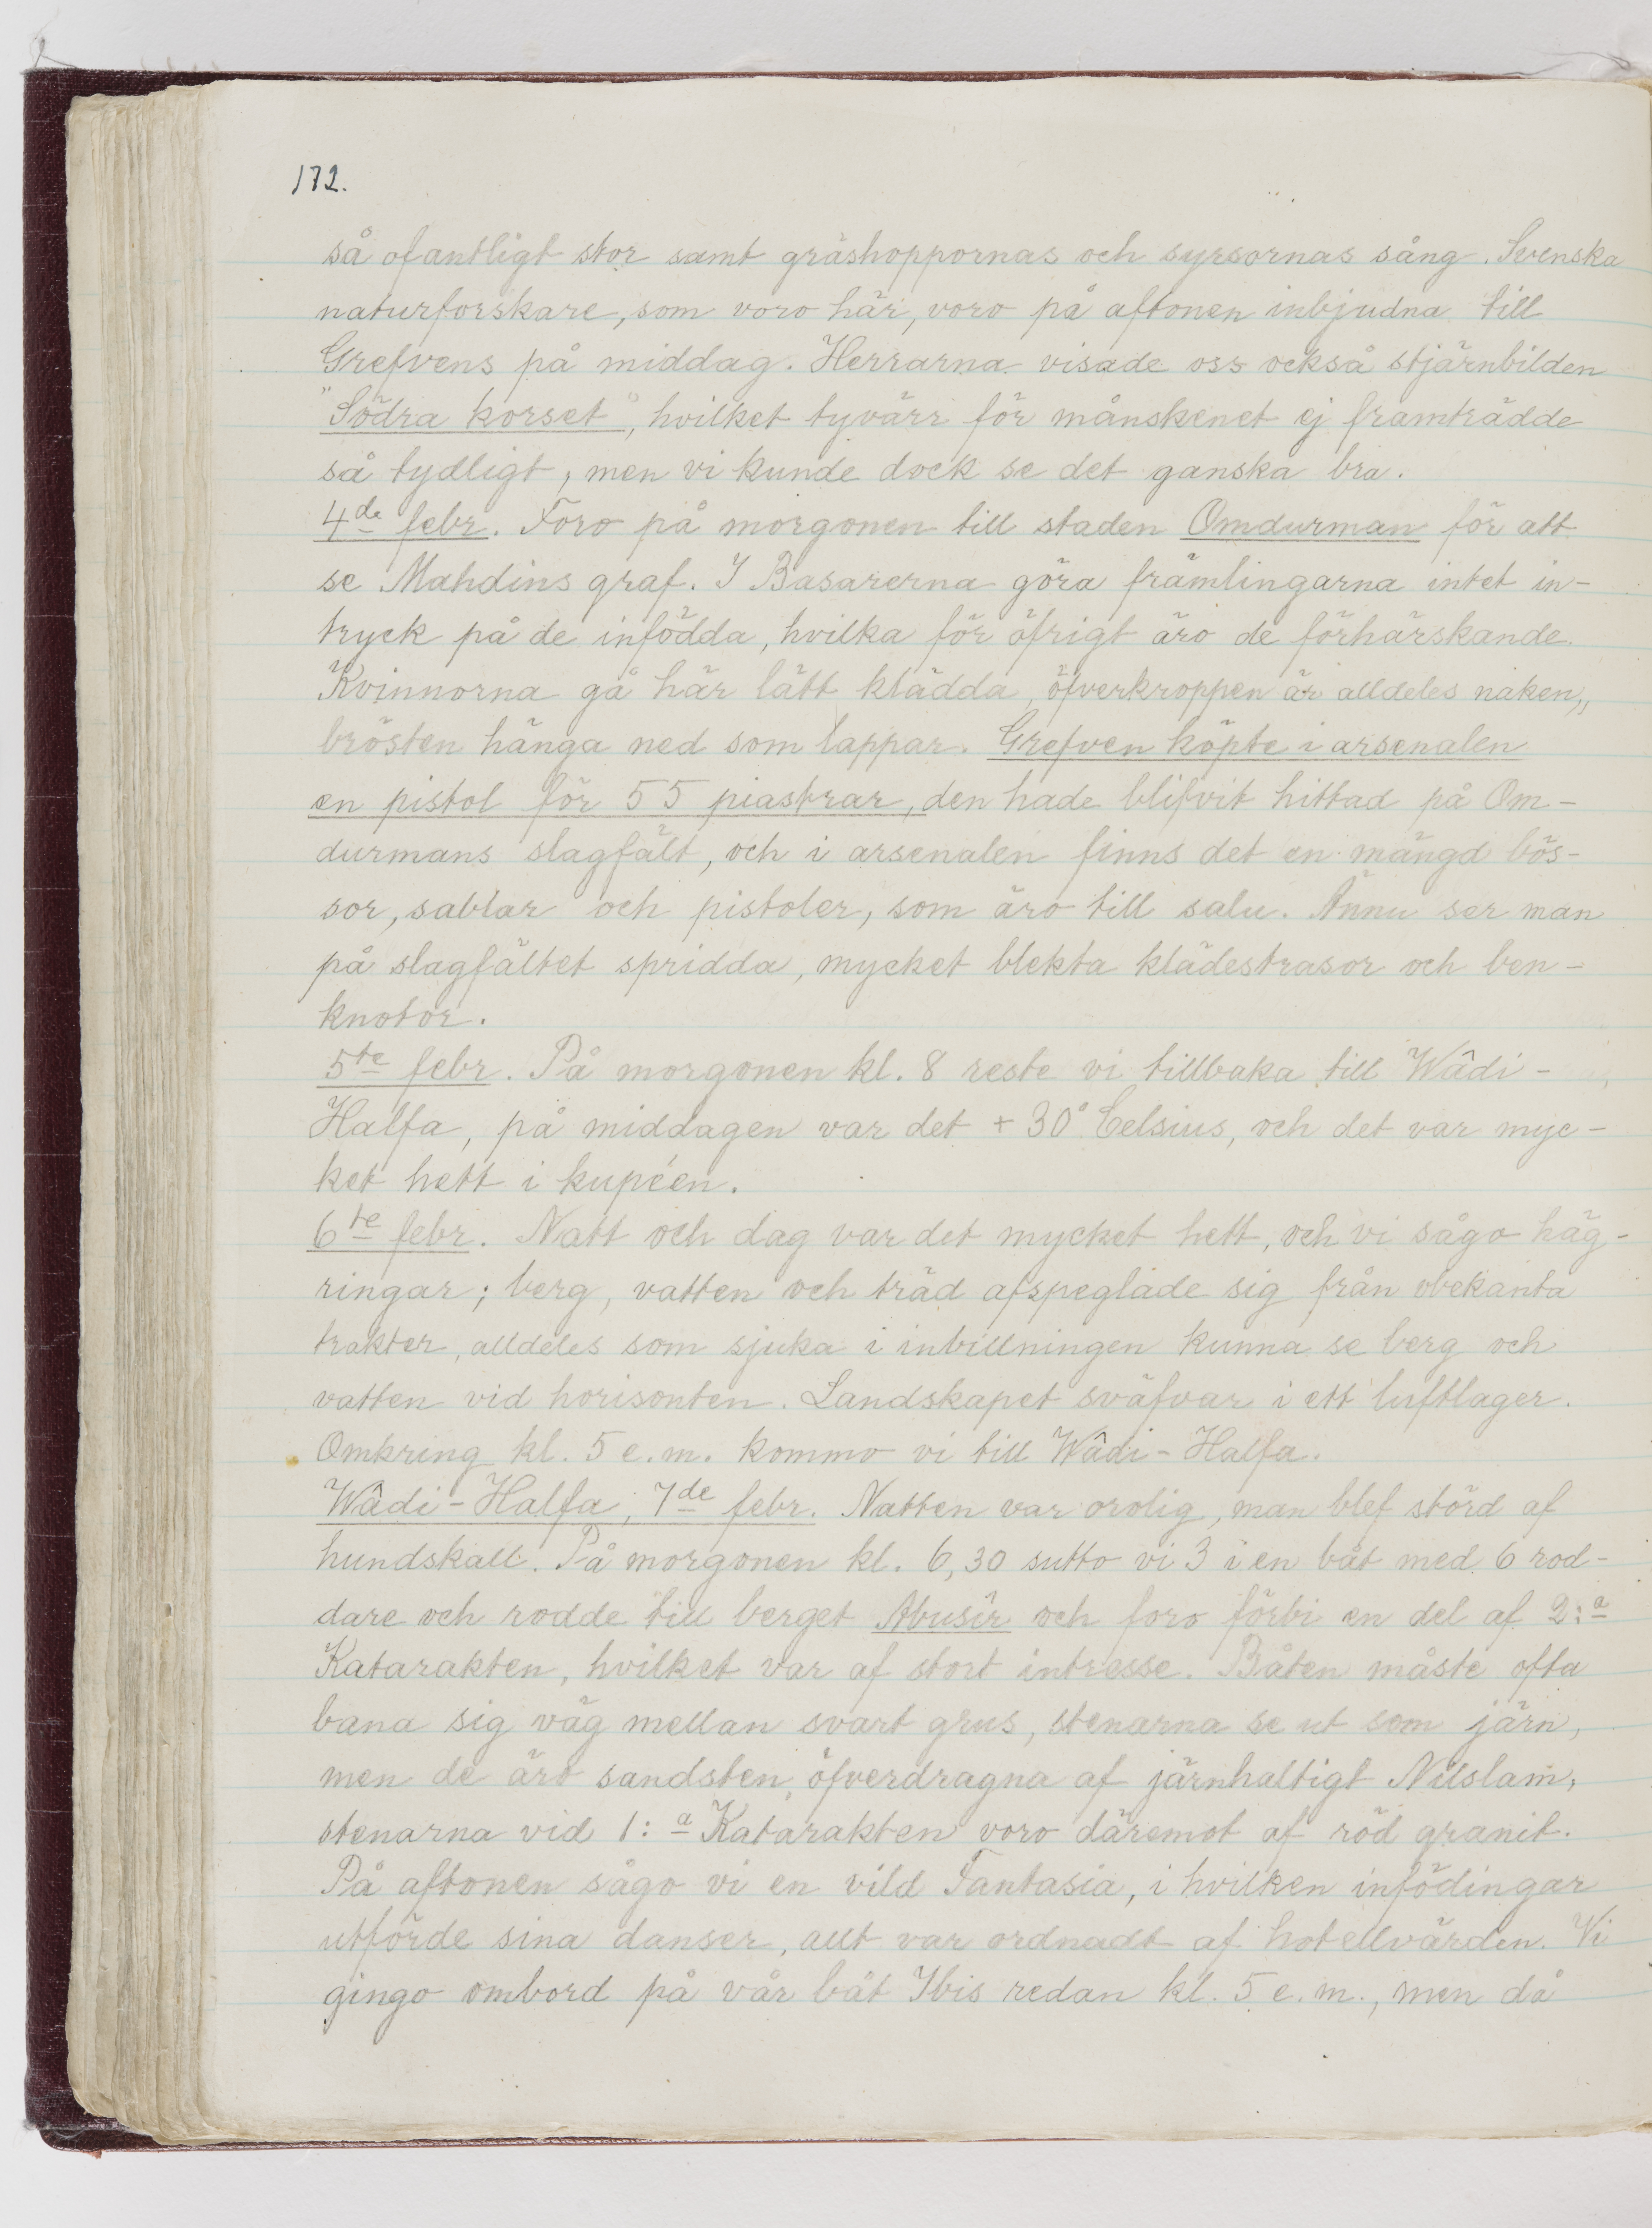 172.
så ofantligt stor samt gräshoppornas och syrsornas sång. Svenska
naturforskare, som voro här, voro på aftonen inbjudna till
Grefvens på middag. Herrarna visade oss också stjärnbilden
"Södra korset", hvilket tyvärr för månskenet ej framträdde
så tydligt, men vi kunde dock se det ganska bra.
4de febr. Foro på morgonen till staden Omdurman för att
se Mahdins graf. I Basarerna göra främlingarna intet in-
tryck på de infödda, hvilka för öfrigt äro de förhärskande.
Kvinnorna gå här lätt klädda, öfverkroppen är alldeles naken,
brösten hänga ned som lappar. Grefven köpte i arsenalen
en pistol för 55 piastrar, den hade blifvit hittad på Om-
durmans slagfält, och i arsenalen finns det en mängd bös-
sor, sablar och pistoler, som äro till salu. Ännu ser man
på slagfältet spridda, mycket blekta klädestrasor och ben-
knotor.
5te febr. På morgonen kl. 8 reste vi tillbaka till Wâdi-
Halfa, på middagen var det + 30° Celsius, och det var myc-
ket hett i kupéen.
6te febr. Natt och dag var det mycket hett, och vi sågo häg-
ringar; berg, vatten och träd afspeglade sig från obekanta
trakter, alldeles som sjuka i inbillningen kunna se berg och
vatten vid horisonten. Landskapet sväfvar i ett luftlager.
Omkring kl. 5 e.m. kommo vi till Wâdi-Halfa.
Wâdi-Halfa, 7de febr. Natten var orolig, man blef störd af
hundskall. På morgonen kl. 6,30 sutto vi 3 i en båt med 6 rod-
dare och rodde till berget Abusîr och foro förbi en del af 2:a
Katarakten, hvilket var af stort intresse. Båten måste ofta
bana sig väg mellan svart grus, stenarna se ut som järn,
men de äro sandsten, öfverdragna af järnhaltigt Nilslam,
stenarna vid 1:a Katarakten voro däremot af röd granit.
På aftonen sågo vi en vild Fantasia, i hvilken infödingar
utförde sina danser, allt var ordnadt af hotellvärden. Vi
gingo ombord på vår båt Ibis redan kl. 5 e.m., men då